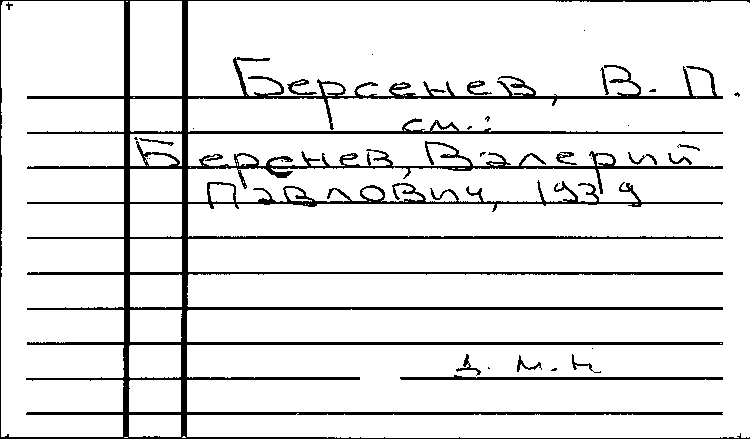 Берсенев, В. П.
см.:
Берснев, Валерий
Павлович, 1939
д. м. н